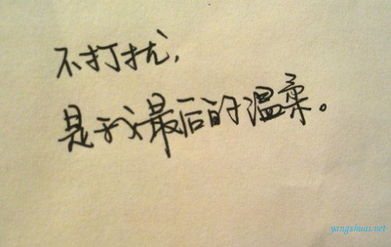 不打扰,
是我最后的温柔。
yangshuai.net